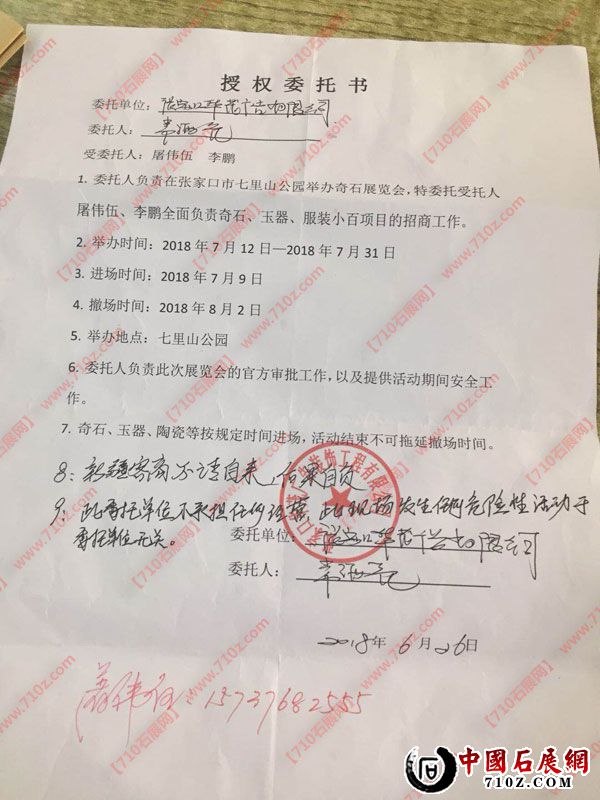 授 权 委 托 书
委托单位：张家口华苑广告有限公司
委托人：
受委托人：屠伟伍 李鹏
1. 委托人负责在张家口市七里山公园举办奇石展览会，特委托受托人
屠伟伍、李鹏全面负责奇石、玉器、服装小百项目的招商工作。
2. 举办时间：2018 年 7 月 12 日—2018 年 7 月 31 日
3. 进场时间：2018 年 7 月 9 日
4. 撤场时间：2018 年 8 月 2 日
5. 举办地点：七里山公园
6. 委托人负责此次展览会的官方审批工作，以及提供活动期间安全工
作。
7. 奇石、玉器、陶瓷等按规定时间进场，活动结束不可拖延撤场时间。
8：新疆客商不请自来，后果自负
9：此委托单位不承担任何 此现场发生任何危险性活动于
委托单位无关。
委托单位：
委托人：
2018年 6 月 26日
屠伟伍：15737682555
【710石展网】www.710z.com
中國石展網
710Z.COM